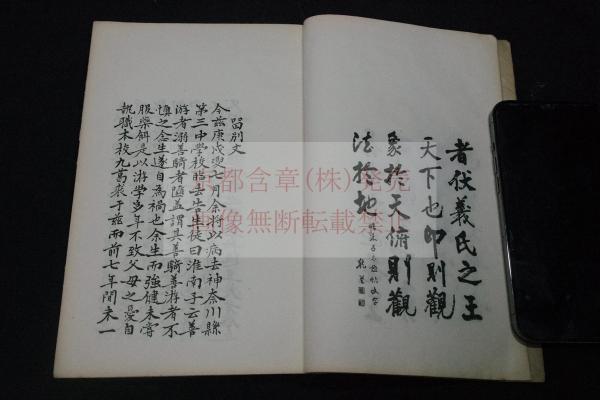 者伏羲氏之王
天下也仰則觀
象於天俯則觀
法於地
留別文
今茲庚戌七月余將以病去神奈川縣
第三中學校臨去告生徒曰淮南子云善
游者溺善騎者墮蓋謂其善騎善游者不
慎之念生遂自為禍也余生而強健未嘗
服藥餌是以游學多年不致父母之憂自
執職本校九裘葛于茲而前七年間未一
京都含章(株)発売
画像無断転載禁止